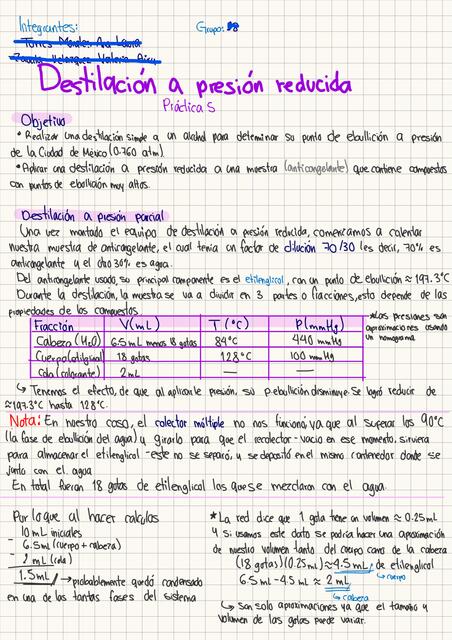 Integrantes:
Grupo:
Destilación a presión reducida
Práctica 5
Objetivo
* Realizar una destilación simple a un alcohol para determinar su punto de ebullición a presión
de la Ciudad de México (0.760 atm).
* Aplicar una destilación a presión reducida a una muestra (anticongelante) que contiene compuestos
con puntos de ebollición muy altos.
Destilación a presión parcial
Una vez montado el equipo de destilación a presión reducida, comenzamos a calentar
nuestra muestra de anticongelante, el cual tenía un factor de dilución 70/30 (es decir, 70% es
anticongelante y el otro 30% es agua.
Del anticongelante usado, su principal componente es el etilenglicol, con un punto de ebullición ≈ 197.3°C
Durante la destilación, la muestra se va a dividir en 3 partes o fracciones, esto depende de las
propiedades de los compuestos.
Fracción V(mL) T(°C) P(mmHg)
Cabeza (H₂O) 6.5 mL menos 18 gotas 84°C 440 mmHg
Cuerpo 18 gotas 128°C 100 mmHg
Cola (colorante) 2 mL — —
*Las presiones son
aproximaciones usando
un nomograma
↳ Tenemos el efecto, de que al aplicarle presión, su p.ebullición disminuye. Se logró reducir de
≈197.3°C hasta 128°C.
Nota: En nuestro caso, el colector múltiple no nos funcionó ya que al superar los 90°C
(la fase de ebullición del agua) y girarlo para que el recolector -vacío en ese momento, sirviera
para almacenar el etilenglicol -este no se separó, y se depositó en el mismo contenedor donde se
junto con el agua.
En total fueron 18 gotas de etilenglicol las que se mezclaron con el agua.
Por lo que al hacer calculos
10 mL iniciales
- 6.5 mL (cuerpo + cabeza)
- 2 mL (cola)
1.5 mL → probablemente quedó condensado
en una de las tantas fases del sistema
* La red dice que 1 gota tiene un volumen ≈ 0.25 mL
y si usamos este dato se podría hacer una aproximación
de nuestro volumen tanto del cuerpo como de la cabeza
(18 gotas)(0.25 mL) ≈ 4.5 mL de etilenglicol
↳ cuerpo
6.5 mL - 4.5 mL ≈ 2 mL
↳ cabeza
↳ Son solo aproximaciones ya que el tamaño y
volumen de las gotas puede variar.